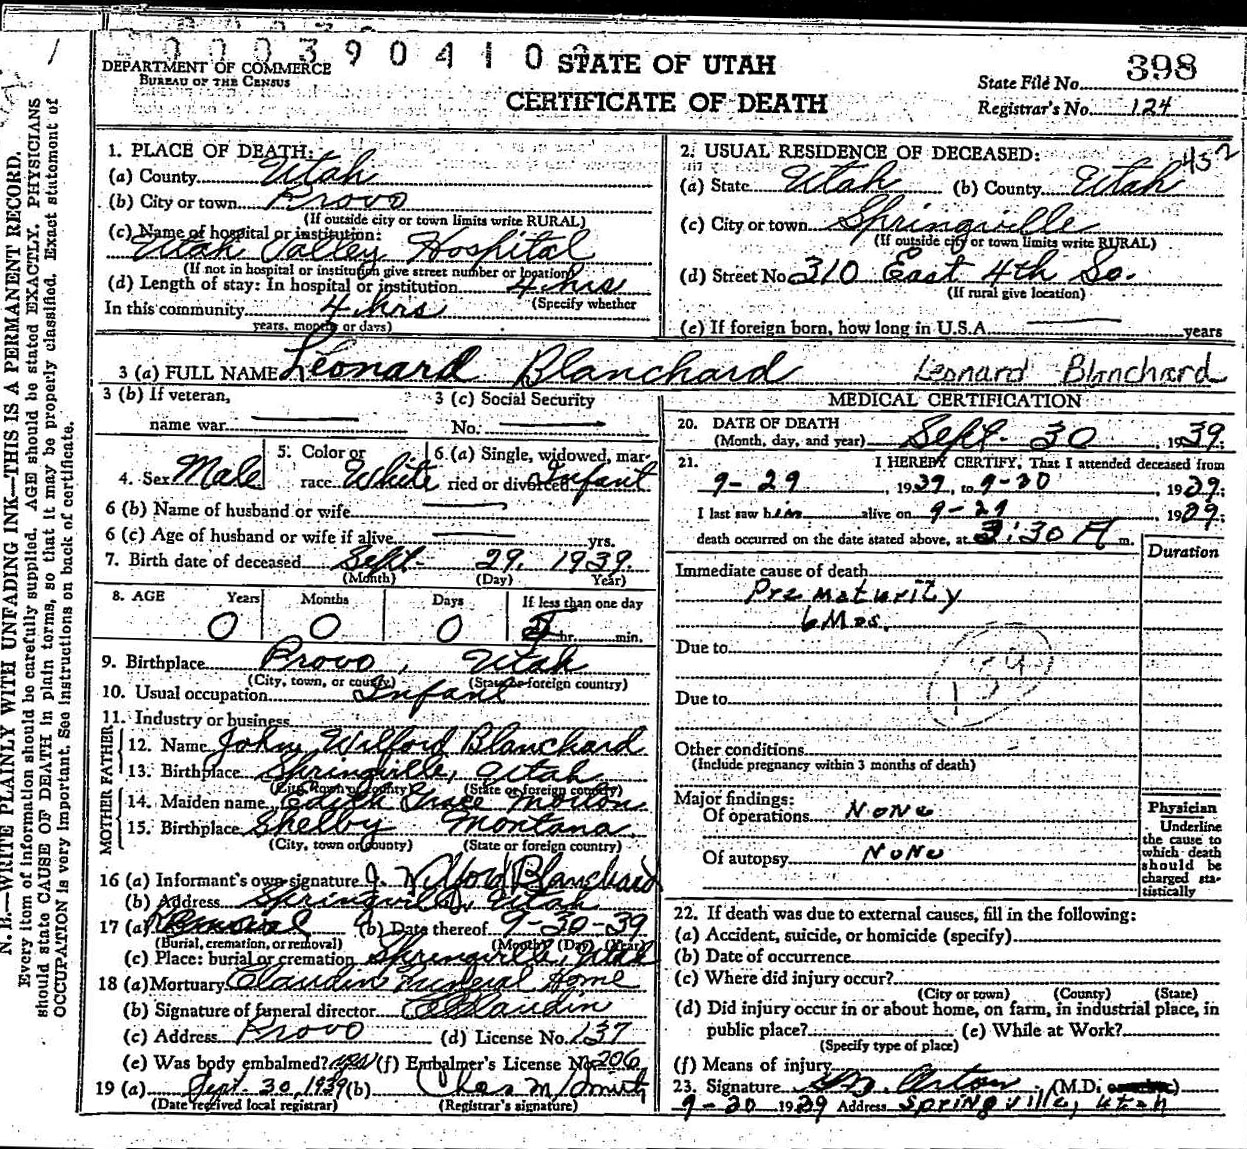 000390410
STATE OF UTAH
CERTIFICATE OF DEATH
DEPARTMENT OF COMMERCE
BUREAU OF THE CENSUS
State File No. 398
Registrar's No. 124
N. B.—WRITE PLAINLY WITH UNFADING INK—THIS IS A PERMANENT RECORD.
Every item of information should be carefully supplied. AGE should be stated EXACTLY. PHYSICIANS
should state CAUSE OF DEATH in plain terms, so that it may be properly classified. Exact statement of
OCCUPATION is very important. See instructions on back of certificate.
1. PLACE OF DEATH:
(a) County Utah
(b) City or town Provo
(If outside city or town limits write RURAL)
(c) Name of hospital or institution:
Utah Valley Hospital
(If not in hospital or institution give street number or location)
(d) Length of stay: In hospital or institution 4 hrs
(Specify whether
In this community 4 hrs
years, months or days)
2. USUAL RESIDENCE OF DECEASED: 452
(a) State Utah (b) County Utah
(c) City or town Springville
(If outside city or town limits write RURAL)
(d) Street No. 310 East 4th So.
(If rural give location)
(e) If foreign born, how long in U.S.A. years
3 (a) FULL NAME Leonard Blanchard Leonard Blanchard
3 (b) If veteran,
name war
3 (c) Social Security
No.
4. Sex Male
5. Color or
race White
6. (a) Single, widowed, mar-
ried or divorced Infant
6 (b) Name of husband or wife
6 (c) Age of husband or wife if alive yrs.
7. Birth date of deceased Sept. 29, 1939
(Month) (Day) Year)
8. AGE Years Months Days If less than one day
0 0 0 hr. min.
9. Birthplace Provo, Utah
(City, town, or county) (State or foreign country)
10. Usual occupation Infant
11. Industry or business
FATHER
12. Name John Wilford Blanchard
13. Birthplace Springville, Utah
(City, town or county) (State or foreign country)
MOTHER
14. Maiden name Edith Grace Morton
15. Birthplace Shelby Montana
(City, town or county) (State or foreign country)
16 (a) Informant's own signature J. Wilford Blanchard
(b) Address Springville, Utah
17 (a) Removal (b) Date thereof 9-30-39
(Burial, cremation, or removal) (Month) (Day) (Year)
(c) Place: burial or cremation Springville, Utah
18 (a) Mortuary Claudin Funeral Home
(b) Signature of funeral director Claudin
(c) Address Provo (d) License No. 137
(e) Was body embalmed? (f) Embalmer's License No. 206
19 (a) Sept. 30, 1939 (b) Chas M Smith
(Date received local registrar) (Registrar's signature)
MEDICAL CERTIFICATION
20. DATE OF DEATH
(Month, day, and year) Sept. 30, 1939.
21. I HEREBY CERTIFY, That I attended deceased from
9-29, 1939, to 9-30, 1939.
I last saw him alive on 9-29, 1939.
death occurred on the date stated above, at 3:30 A m.
Duration
Immediate cause of death
Prematurity
6 Mos.
Due to
159
Due to
Other conditions
(Include pregnancy within 3 months of death)
Major findings:
Of operations None
Of autopsy None
Physician
Underline
the cause to
which death
should be
charged sta-
tistically
22. If death was due to external causes, fill in the following:
(a) Accident, suicide, or homicide (specify)
(b) Date of occurrence
(c) Where did injury occur?
(City or town) (County) (State)
(d) Did injury occur in or about home, on farm, in industrial place, in
public place? (e) While at Work?
(Specify type of place)
(f) Means of injury
23. Signature Orton (M.D. )
9-30 1939 Address Springville, Utah